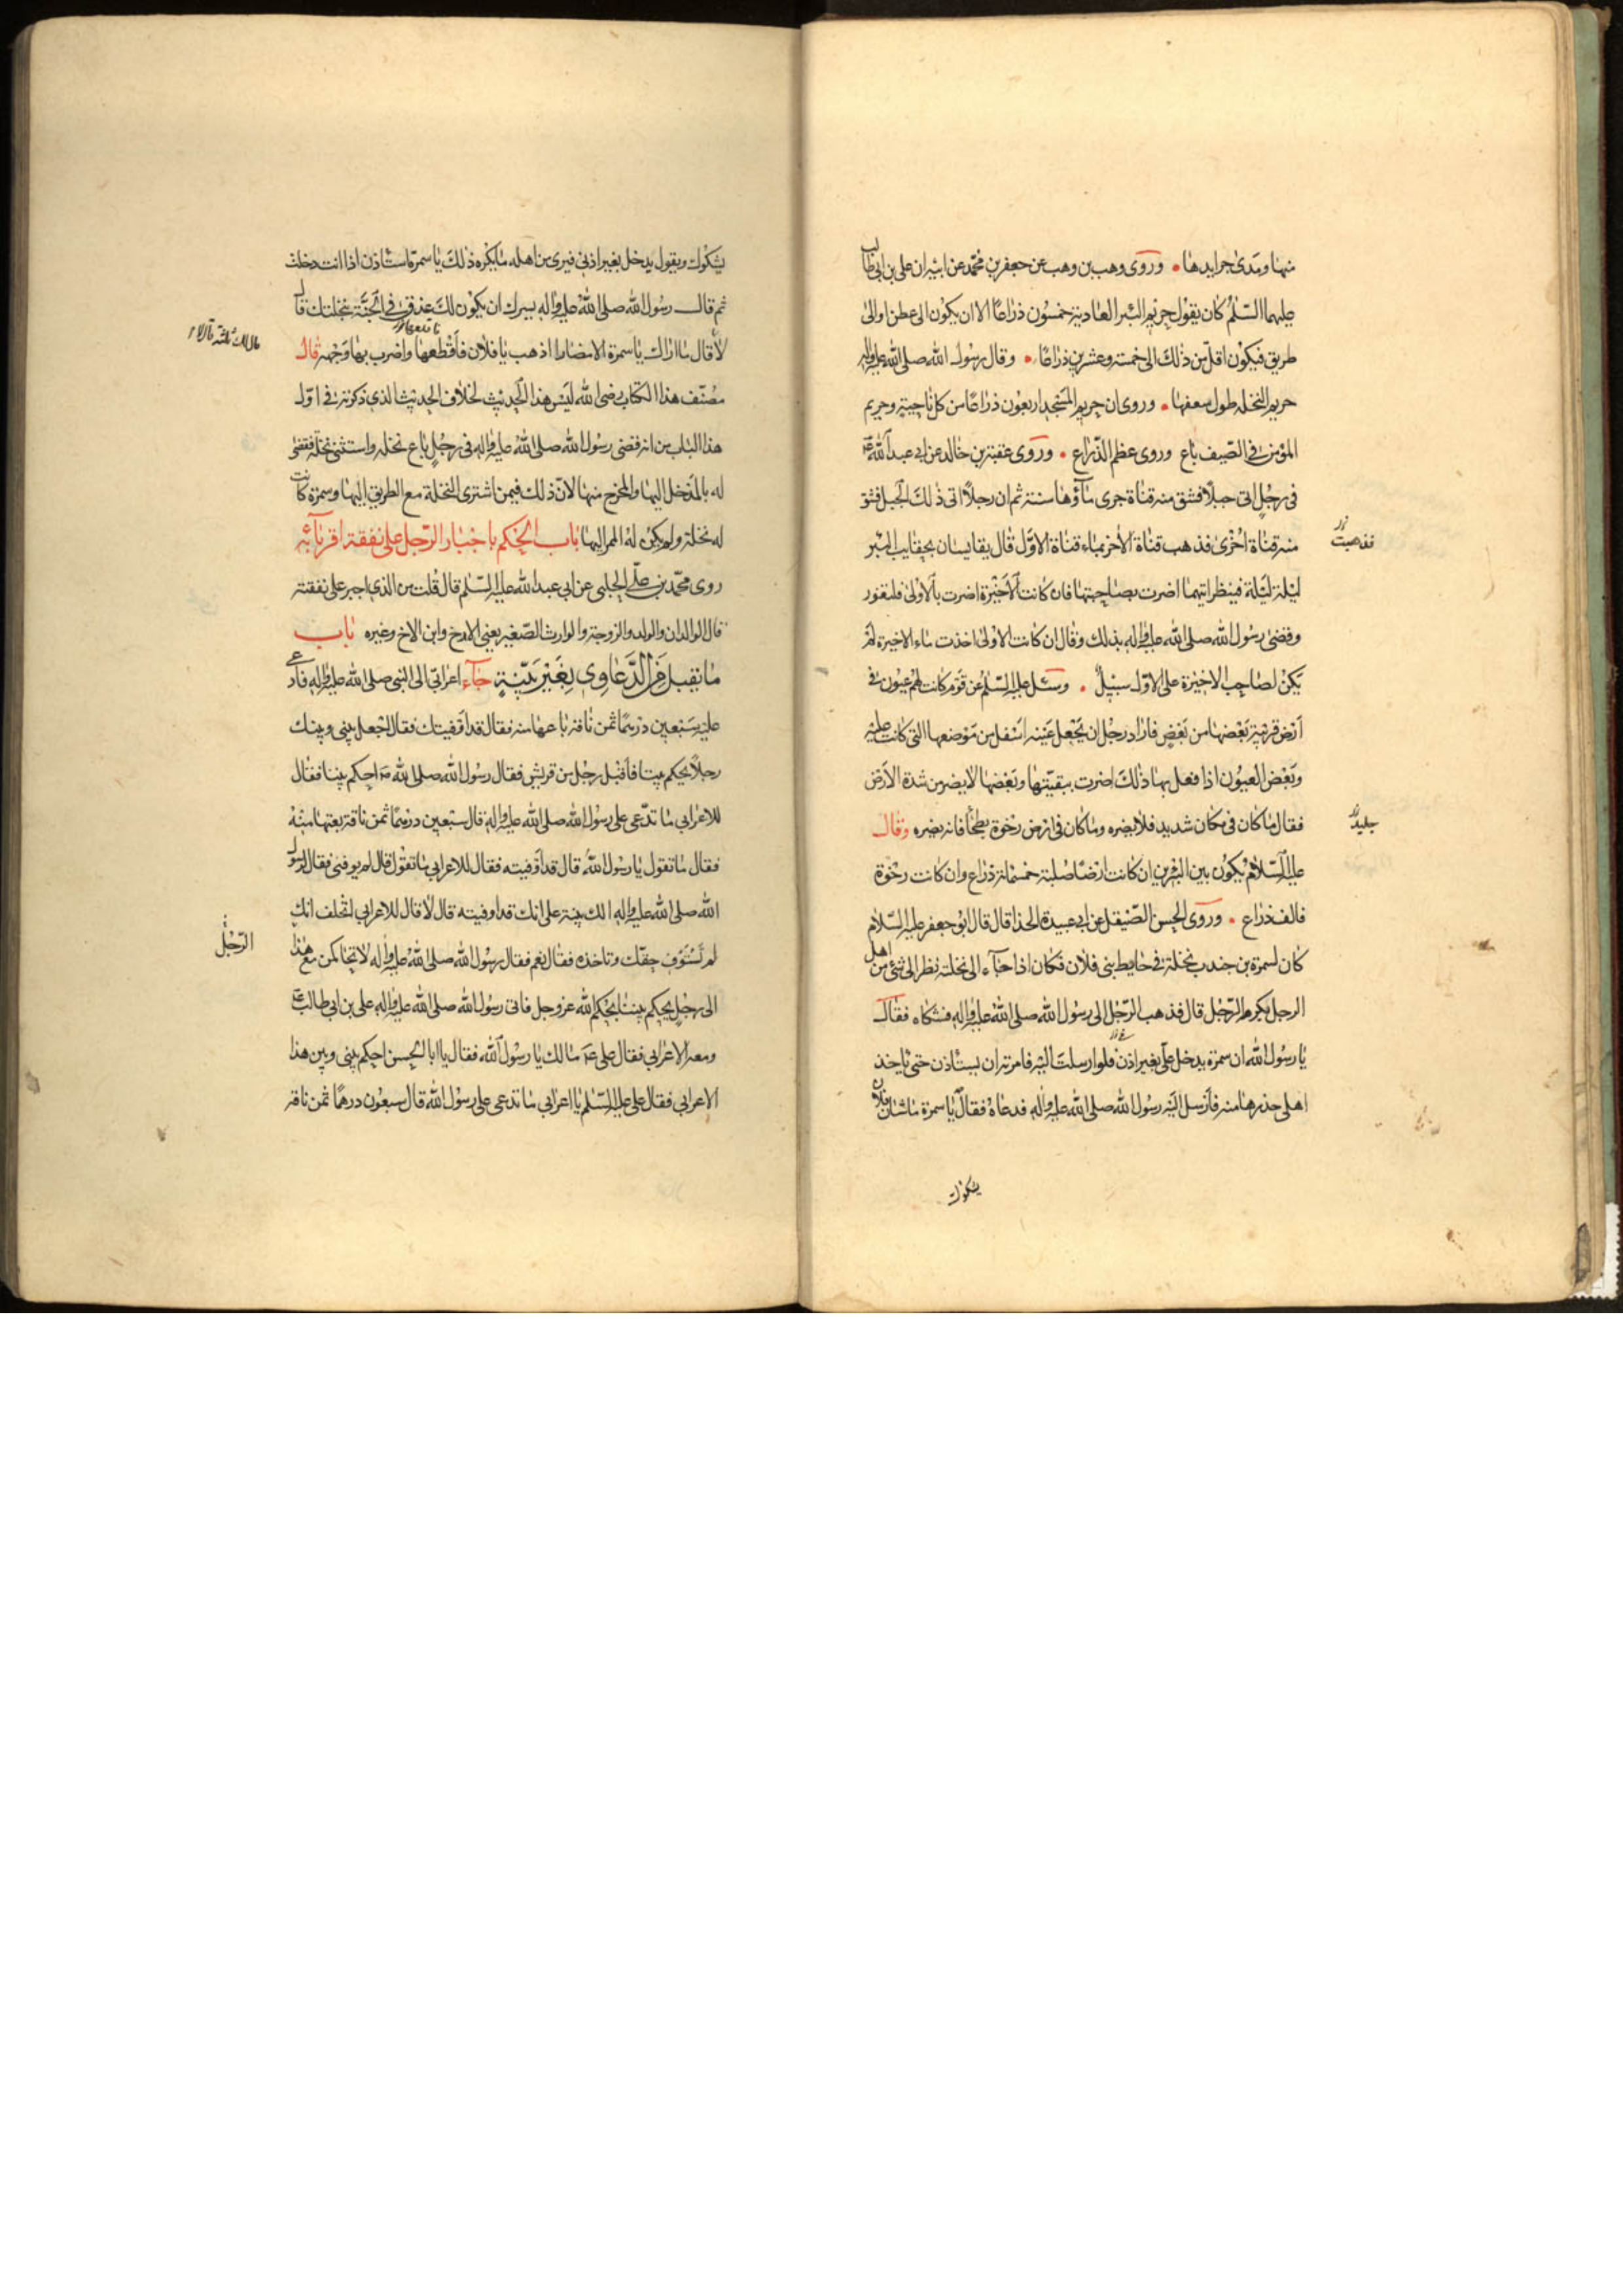 منها ومدى جرايدها • وروى وهب بن وهب عن جعفر بن محمد عن ابيه ان علي بن ابي طالب
عليهما السلم كان يقول حريم البئر العادية خمسون ذراعا الا ان يكون الى عطن او الى
طريق فيكون اقل من ذلك الى خمسة وعشرين ذراعا • وقال رسول الله صلى الله عليه واله
حريم النخلة طول سعفها • وروى ان حريم المسجد اربعون ذراعا من كل ناحية وحريم
المؤمن في الصيف باع وروى عظم الذراع • وروى عقبة بن خالد عن ابي عبد الله ع
في رجل اتى جبلا فشق منه قناة جرى ماؤها سنة ثم ان رجلا اتى ذلك الجبل فشق
منه قناة اخرى فذهب قناة الاخر بماء قناة الاول قال يقايسان بحقايب البئر
ليلة ليلة فينظر ايتهما اضرت بصاحبتها فان كانت الاخيرة اضرت بالاولى فلتعور
وقضى رسول الله صلى الله عليه واله بذلك وقال ان كانت الاولى اخذت ماء الاخيرة لم
يكن لصاحب الاخيرة على الاول سبيل • وسئل عليه السلم عن قوم كانت لهم عيون في
ارض قريبة بعضها من بعض فاراد رجل ان يجعل عينه اسفل من موضعها التي كانت عليه
وبعض العيون اذا فعل بها ذلك اضرت ببقيتها وبعضها لا يضر من شدة الارض
فقال ما كان في مكان شديد فلا يضره وما كان في ارض رخوة بطحا فانه يضره وقال
عليه السلام يكون بين البئرين ان كانت ارضا صلبة خمسمائة ذراع وان كانت رخوة
فالف ذراع • وروى الحسن الصيقل عن ابي عبيدة الحذا قال قال ابو جعفر عليه السلام
كان لسمرة بن جندب نخلة في حايط بني فلان فكان اذا جاء الى نخلته نظر الى شئ من اهل
الرجل يكرهه الرجل قال فذهب الرجل الى رسول الله صلى الله عليه واله فشكاه فقال
يا رسول الله ان سمرة يدخل علي بغير اذن فلو ارسلت اليه فامرته ان يستاذن حتى تاخذ
اهلي حذرها منه فارسل اليه رسول الله صلى الله عليه واله فدعاه فقال يا سمرة ما شان فلان
يشكوك
فذهبت
يشكوك ويقول يدخل بغير اذني فيرى من اهله ما يكره ذلك يا سمرة استاذن اذا انت دخلت
ثم قال رسول الله صلى الله عليه واله يسرك ان يكون لك عذق في الجنة بنخلتك قال
لا قال ما اراك يا سمرة الا مضارا اذهب يا فلان فاقطعها واضرب بها وجهه قال
مصنف هذا الكتاب رضي الله ليس هذا الحديث بخلاف الحديث الذي ذكرته في اول
هذا الباب من انه قضى رسول الله صلى الله عليه واله في رجل باع نخله واستثنى نخلة فقضى
له بالمدخل اليها والمخرج منها لان ذلك فيمن اشترى النخلة مع الطريق اليها وسمرة كانت
له نخلة ولم يكن له الممر اليها باب الحكم باجبار الرجل على نفقة اقربائه
روى محمد بن علي الحلبي عن ابي عبد الله عليه السلم قال قلت من الذي اجبر على نفقته
قال الوالدان والولد والزوجة والوارث الصغير يعني الاخ وابن الاخ وغيره باب
ما يقبل من الدعاوى بغير بينة جاء اعرابي الى النبي صلى الله عليه واله فادعى
عليه سبعين درهما ثمن ناقة باعها منه فقال قد اوفيتك فقال اجعل بيني وبينك
رجلا يحكم بيننا فاقبل رجل من قريش فقال رسول الله صلى الله احكم بيننا فقال
للاعرابي ما تدعي على رسول الله صلى الله عليه واله قال سبعين درهما ثمن ناقة بعتها منه
فقال ما تقول يا رسول الله قال قد اوفيته فقال للاعرابي ما تقول قال لم يوفني فقال لرسول
الله صلى الله عليه واله الك بينة على انك قد اوفيته قال لا قال للاعرابي اتحلف انك
لم تستوف حقك وتاخذه فقال نعم فقال رسول الله صلى الله عليه واله لاتحاكمن مع هذا
الرجل
الى رجل يحكم بيننا بحكم الله عز وجل فاتى رسول الله صلى الله عليه واله علي بن ابي طالب ع
ومعه الاعرابي فقال علي ع مالك يا رسول الله فقال يا ابا الحسن احكم بيني وبين هذا
الاعرابي فقال علي عليه السلم يا اعرابي ما تدعي على رسول الله قال سبعون درهما ثمن ناقة